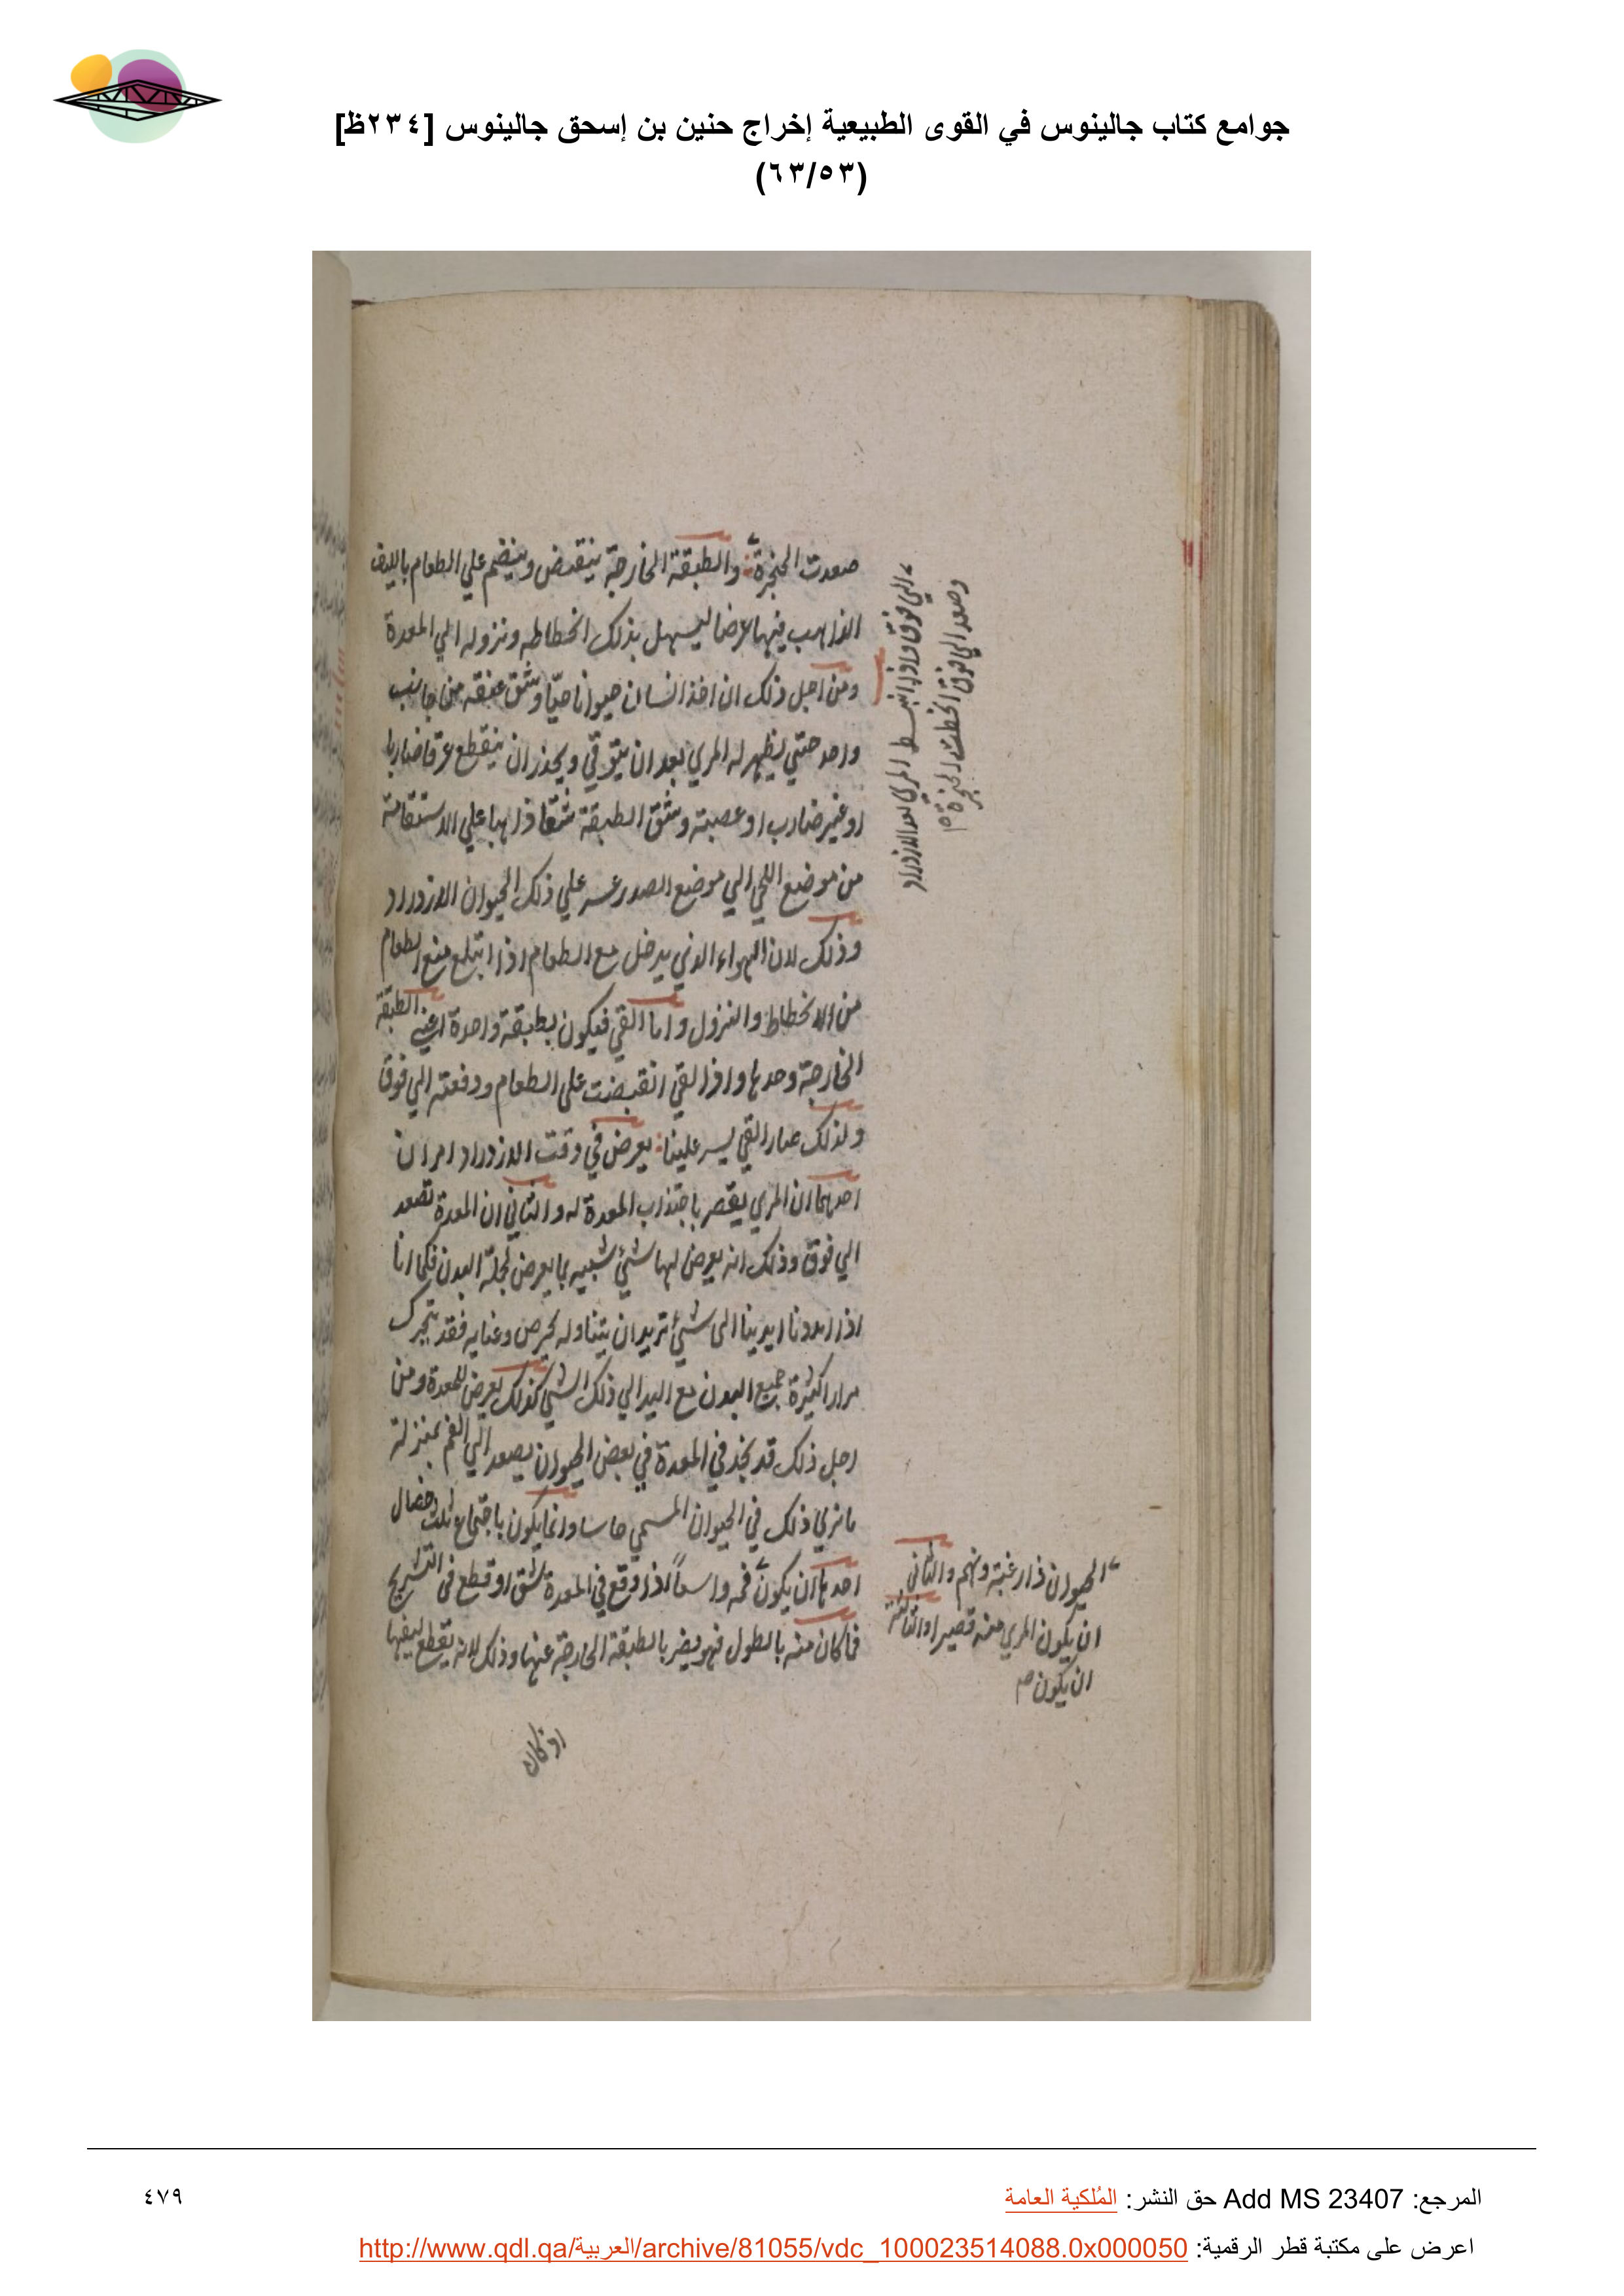 جوامع كتاب جالينوس في القوى الطبيعية إخراج حنين بن إسحق جالينوس [٢٣٤ظ]
(٦٣/٥٣)
صعدت الحنجرة والطبقة الخارجة ينقبض وينضم علي الطعام بالليف
الذاهب فيها عرضا ليسهل بذلك انحطاطه ونزوله الي المعدة
ومن اجل ذلك ان اخذ انسان حيوانا حيّا وشق عنقه من جانب
واحد حتي يظهر له المري بعد ان يتوقي ويحذر ان ينقطع عرقا ضاربا
او غير ضارب او عصبة وشق الطبقة شقا ذاهبا علي الاستقامة
من موضع اللحي الي موضع الصدر عسر علي ذلك الحيوان الازدراد
وذلك لان الهواء الذي يدخل مع الطعام اذا ابتلع منع الطعام
من الانحطاط والنزول واما القي فيكون بطبقة واحدة اعني الطبقة
الخارجة وحدها واذا لقي انقبضت علي الطعام ودفعته الي فوق
ولذلك صار القي يسر علينا يعرض في وقت الازدراد امران
احدهما ان المري يقصر باجتذاب المعدة له والثاني ان المعدة تصعد
الي فوق وذلك انه يعرض لها شئ شبيه بما يعرض لجملة البدن فكما انا
اذا مددنا ايدينا الى شئ تريد ان يتناوله بحرص وعنايه فقد يتحرك
مرارا كثيرة جميع البدن مع اليد الي ذلك الشي كذلك يعرض للمعدة ومن
اجل ذلك قد نجد في المعدة في بعض الحيوان يصعد الي الفم بمنزلة
ما نري ذلك في الحيوان المسمي حاسا وانما يكون باجتماع ثلث خصال
احدها ان يكون فمه واسعاً اذا وقع في المعدة شق او قطع في التشريح
فما كان منه بالطول فهو يضر بالطبقة الخارجة عنها وذلك لانه يقطع ليفها
او كان
الي فوق واذا انبسط المري بعد الازدراد
وصعد الي فوق انحطت الحنجرة
الحيوان ذا رغبة ونهم والثاني
ان يكون المري منه قصيرا والثالثة
ان يكون
المرجع: Add MS 23407 حق النشر: المُلكية العامة
٤٧٩
اعرض على مكتبة قطر الرقمية: http://www.qdl.qa/العربية/archive/81055/vdc_100023514088.0x000050